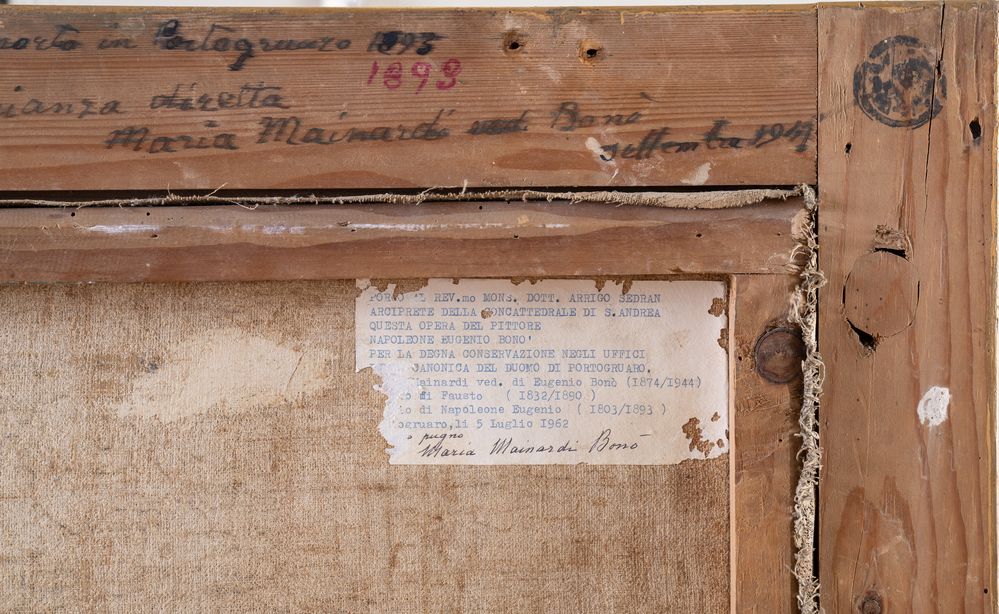 morto in Portogruaro 1893
1893
diretta
Maria Mainardi ved. Bonò
settembre
REV.mo MONS. DOTT. ARRIGO SEDRAN
ARCIPRETE DELLA CONCATTEDRALE DI S.ANDREA
QUESTA OPERA DEL PITTORE
NAPOLEONE EUGENIO BONO'
PER LA DEGNA CONSERVAZIONE NEGLI UFFICI
CANONICA DEL DUOMO DI PORTOGRUARO.
Mainardi ved. di Eugenio Bonò (1874/1944)
di Fausto ( 1832/1890 )
di Napoleone Eugenio ( 1803/1893 )
ogruaro,li 5 Luglio 1962
pugno
Maria Mainardi Bonò